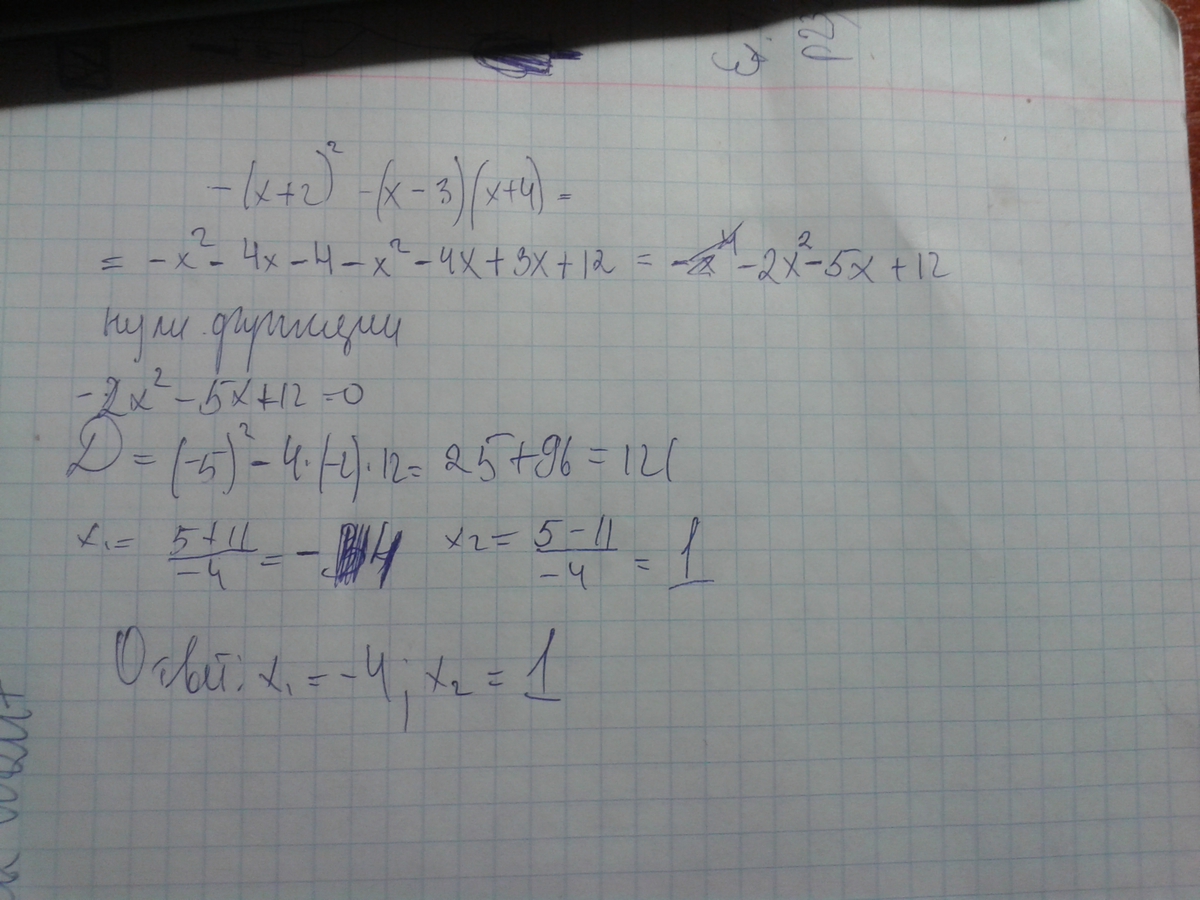 -(x+2)² -(x-3)(x+4) =
= -x² - 4x - 4 - x² - 4x + 3x + 12 = -2x² - 5x + 12
нули функции
-2x² - 5x + 12 = 0
D = (-5)² - 4·(-2)·12 = 25 + 96 = 121
x₁ = (5+11)/(-4) = -4 x₂ = (5-11)/(-4) = 1
Ответ: x₁ = -4; x₂ = 1